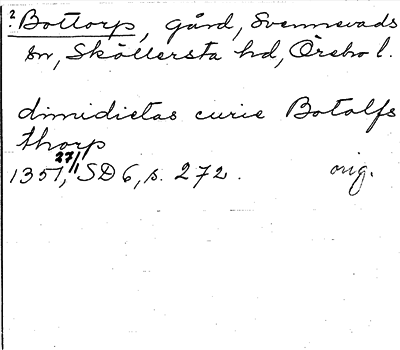 ? Bottorp, gård, Svennevads
sn, Sköllersta hd, Örebro l.
dimidietas curie Botolfs
thorp
1351 27/1, SD 6, s. 272. orig.